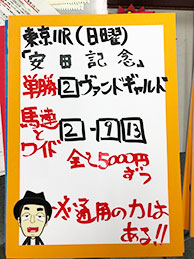 東京11R(日曜)
「安田記念」
単勝 2 ヴァンドギャルド
馬連と
ワイド
2-9 13
全て5000円
ずつ
通用の力は
ある!!